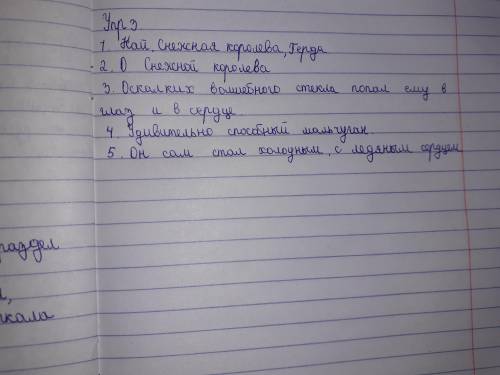 Упр 3
1 Кай, Снежная королева, Герда
2. О Снежной королева
3. Осколких волшебного стекла попал ему в
глаз и в сердце.
4 Удивительно способный мальчуган.
5. Он сам стал холодным, с ледяным сердцем
раздел
кала